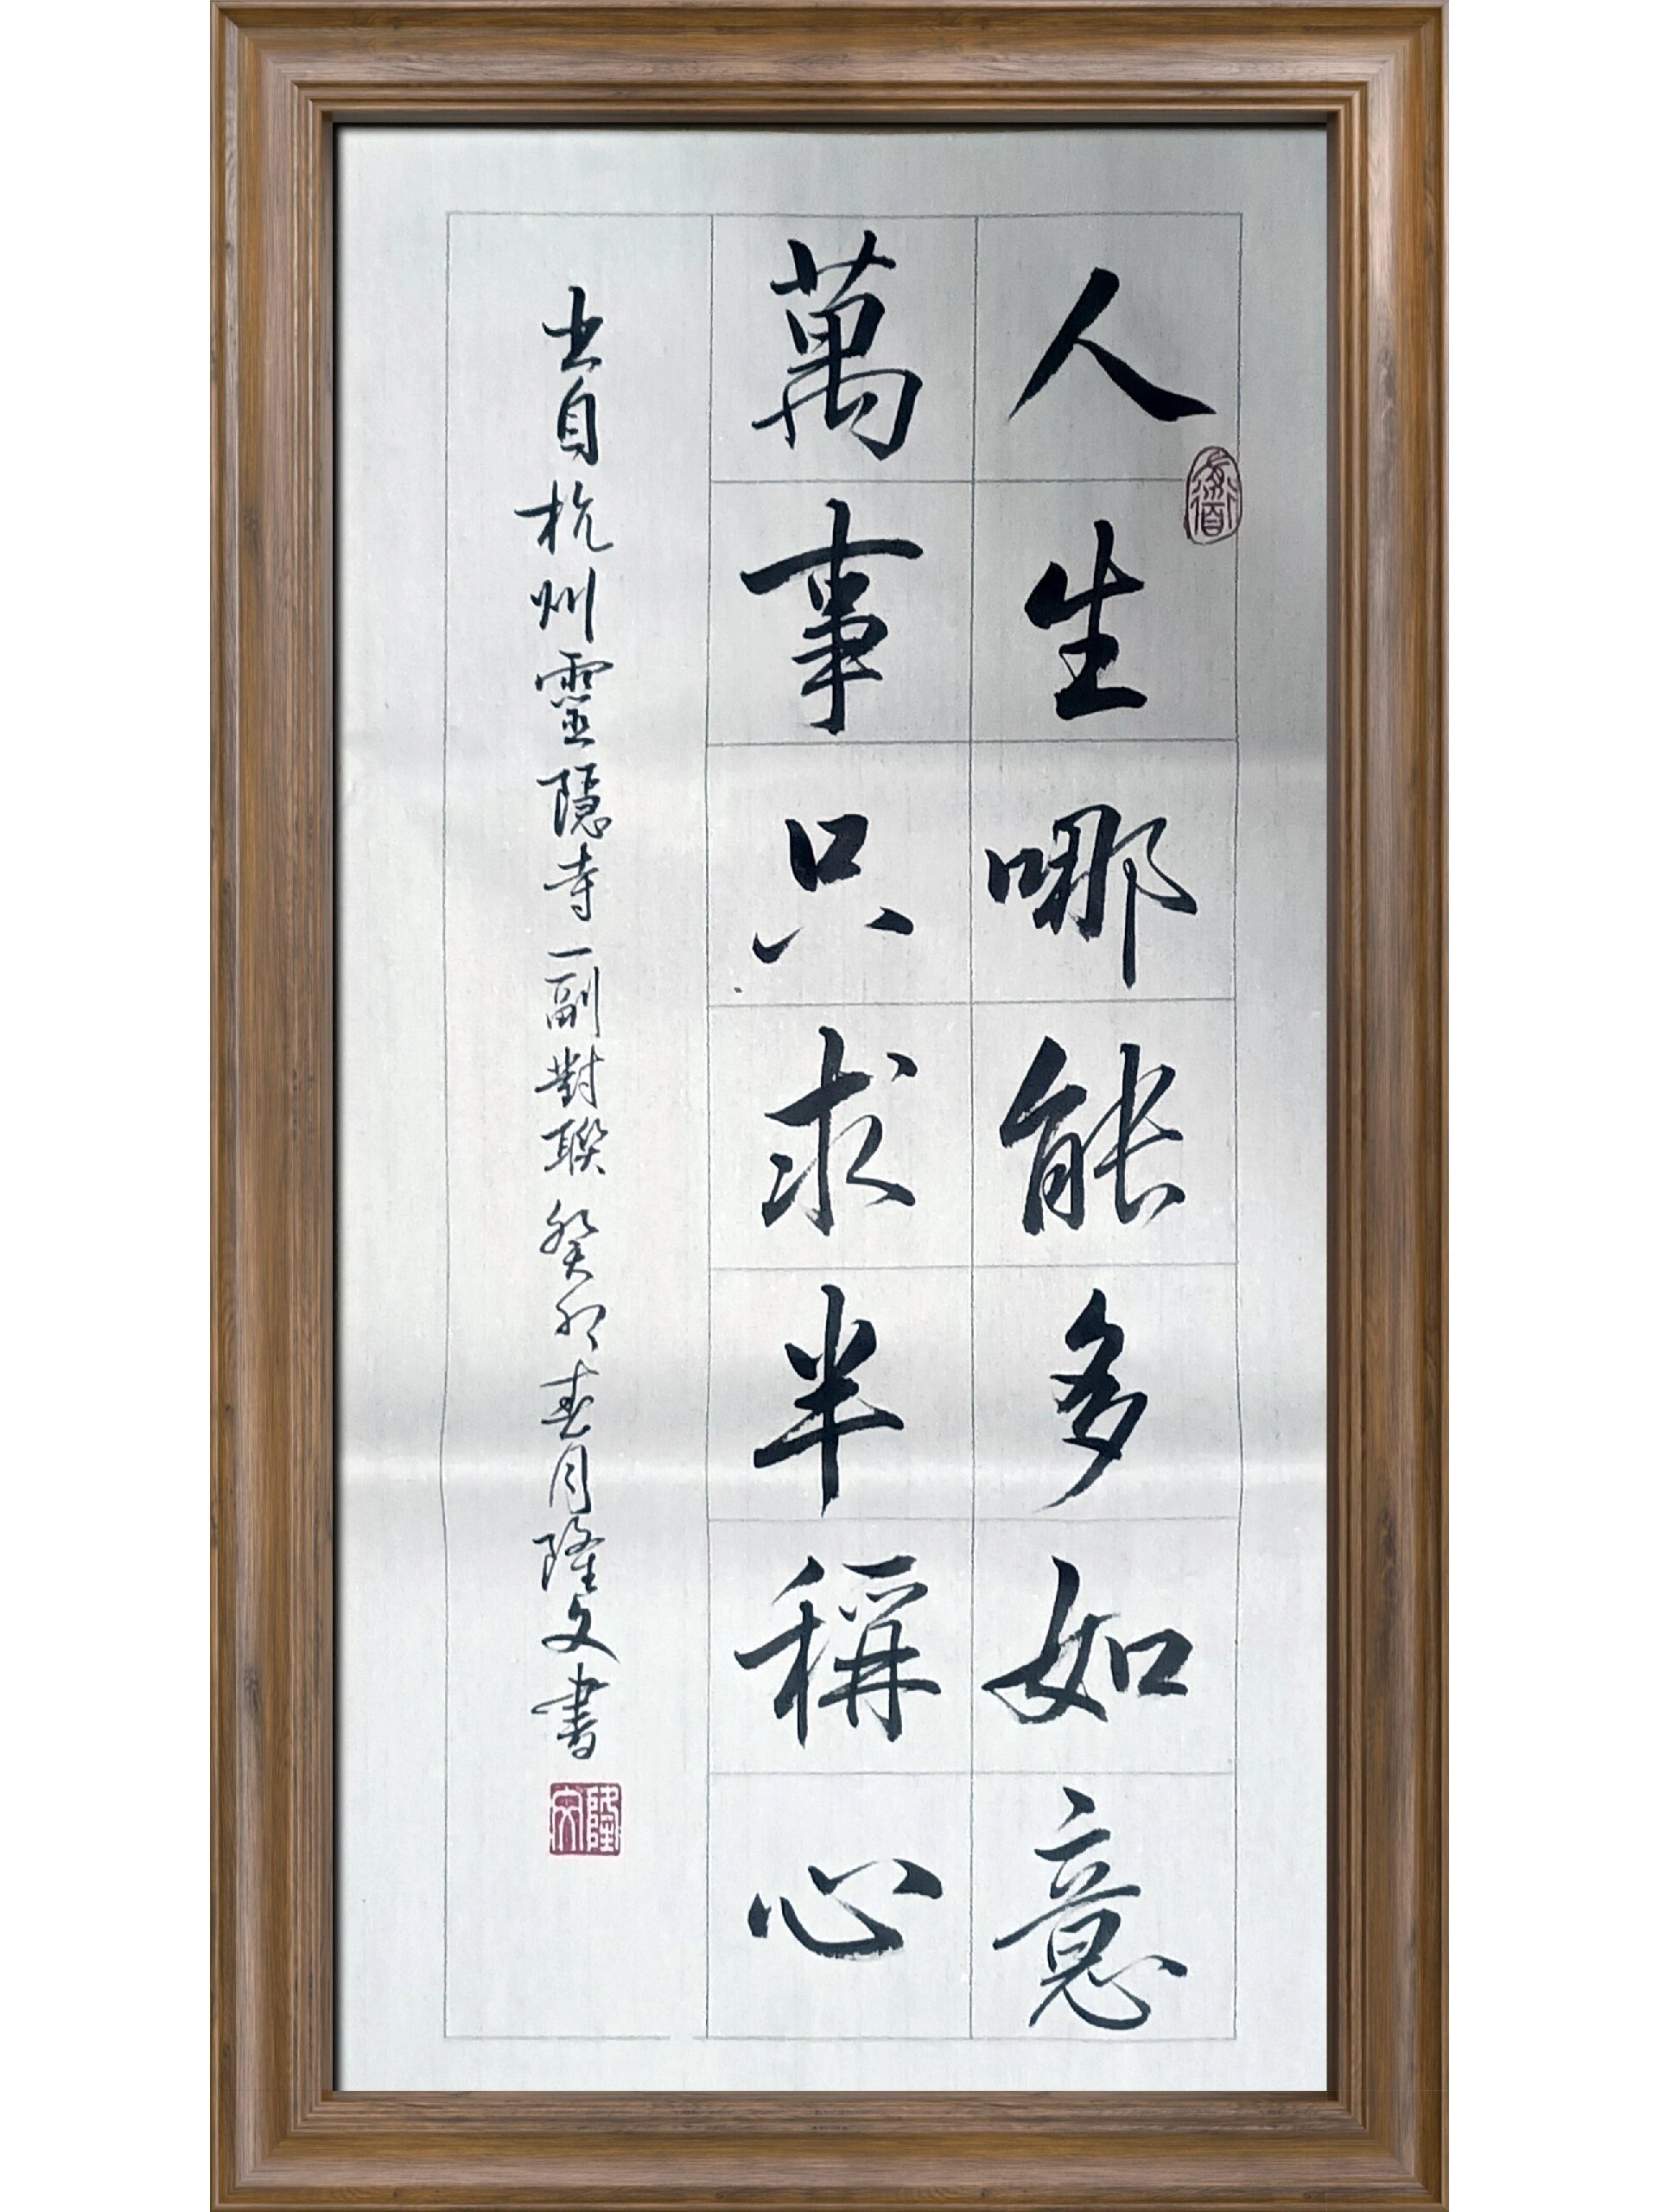 人生哪能多如意
萬事只求半稱心
出自杭州靈隱寺一副對聯癸卯春月隆文書
隆文